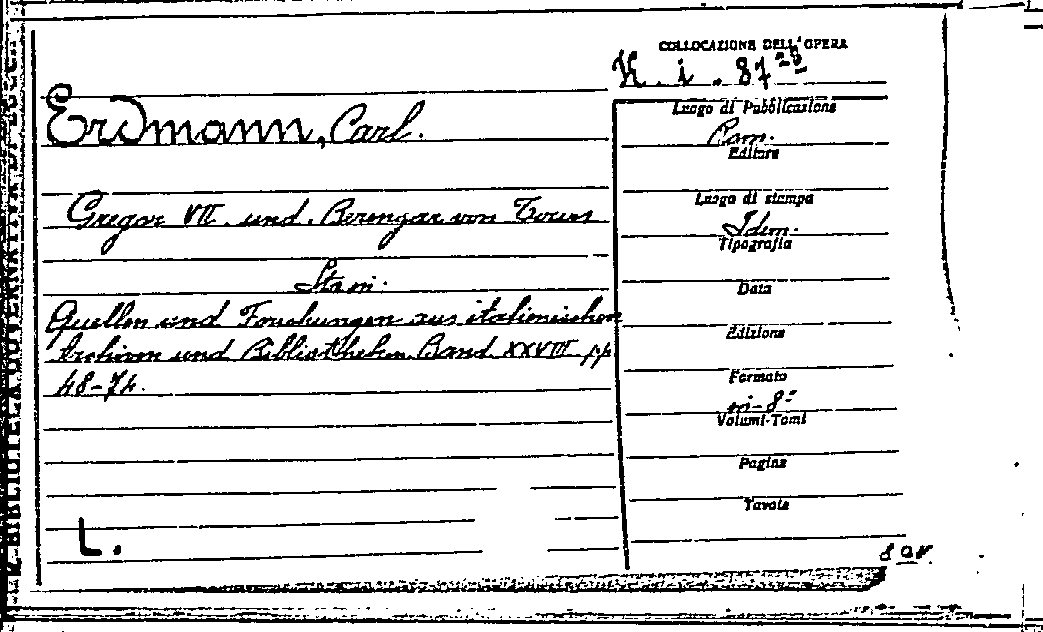 R. BIBLIOTECA GOVERNATIVA DI LUCCA
COLLOCAZIONE DELL'OPERA
K. i. 87 28
Erdmann, Carl.
Luogo di Pubblicazione
Rom.
Editore
Gregor VII und Berengar von Tours
Luogo di stampa
Idem.
Tipografia
Data
Quellen und Forschungen aus italienischen
Archiven und Bibliotheken Band XXVIII pp
48-74.
Edizione
Formato
in-8°
Volumi-Tomi
Pagine
Tavole
L.